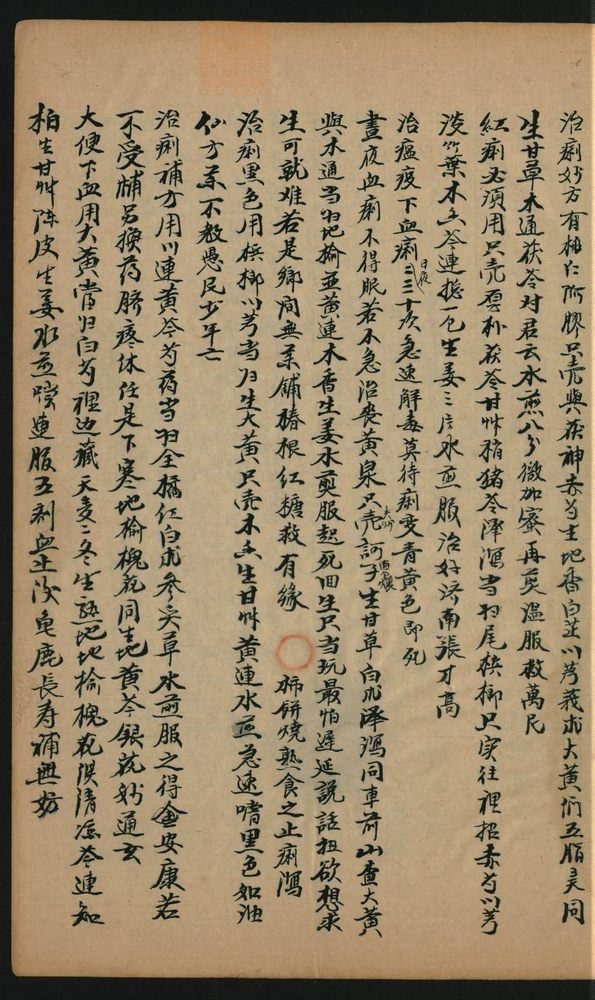 治痢妙方有桃仁阿膠只壳與茯神赤芍生地香白芷川芎莪朮大黃們五脂灵同
生甘草木通茯苓对君云水煎八分微加蜜再煎温服救萬民
紅痢必須用只壳厚朴茯苓甘艸猪苓泽瀉当归尾槟榔只实往裡招赤芍川芎
淡竹葉木香苓連摠一包生姜三片水煎服治好济南張才高
治瘟疫下血痢日夜二三十次急速解毒莫待痢变青黃色即死
晝夜血痢不得眠若不急治丧黃泉只壳訶子生甘草白朮泽瀉同車前山查大黃
與木通当归地榆並黃連木香生姜水煎服起死回生只当玩最怕遲延説話扭欲想求
生可就难若是鄉间無茶鋪椿根红糖救有緣 柿餅燒熟食之止痢瀉
治痢黑色用槟榔川芎当归生大黃只壳木香生甘艸黃連水煎急速嚐黑色如油
仙方茶不救愚民少年亡
治痢補方用川連黃苓芍药当归全橘红白朮参炙草水煎服之得金安康若
不受補另換药脐疼休任是下寒地榆槐花同生地黃芩銀花妙通玄
大便下血用大黃當归白芍裡边藏天麦二冬生熟地地榆槐花陳清凉苓連知
柏生甘艸陈皮生姜水煎嚐連服五剂血止後龟鹿長寿補無妨